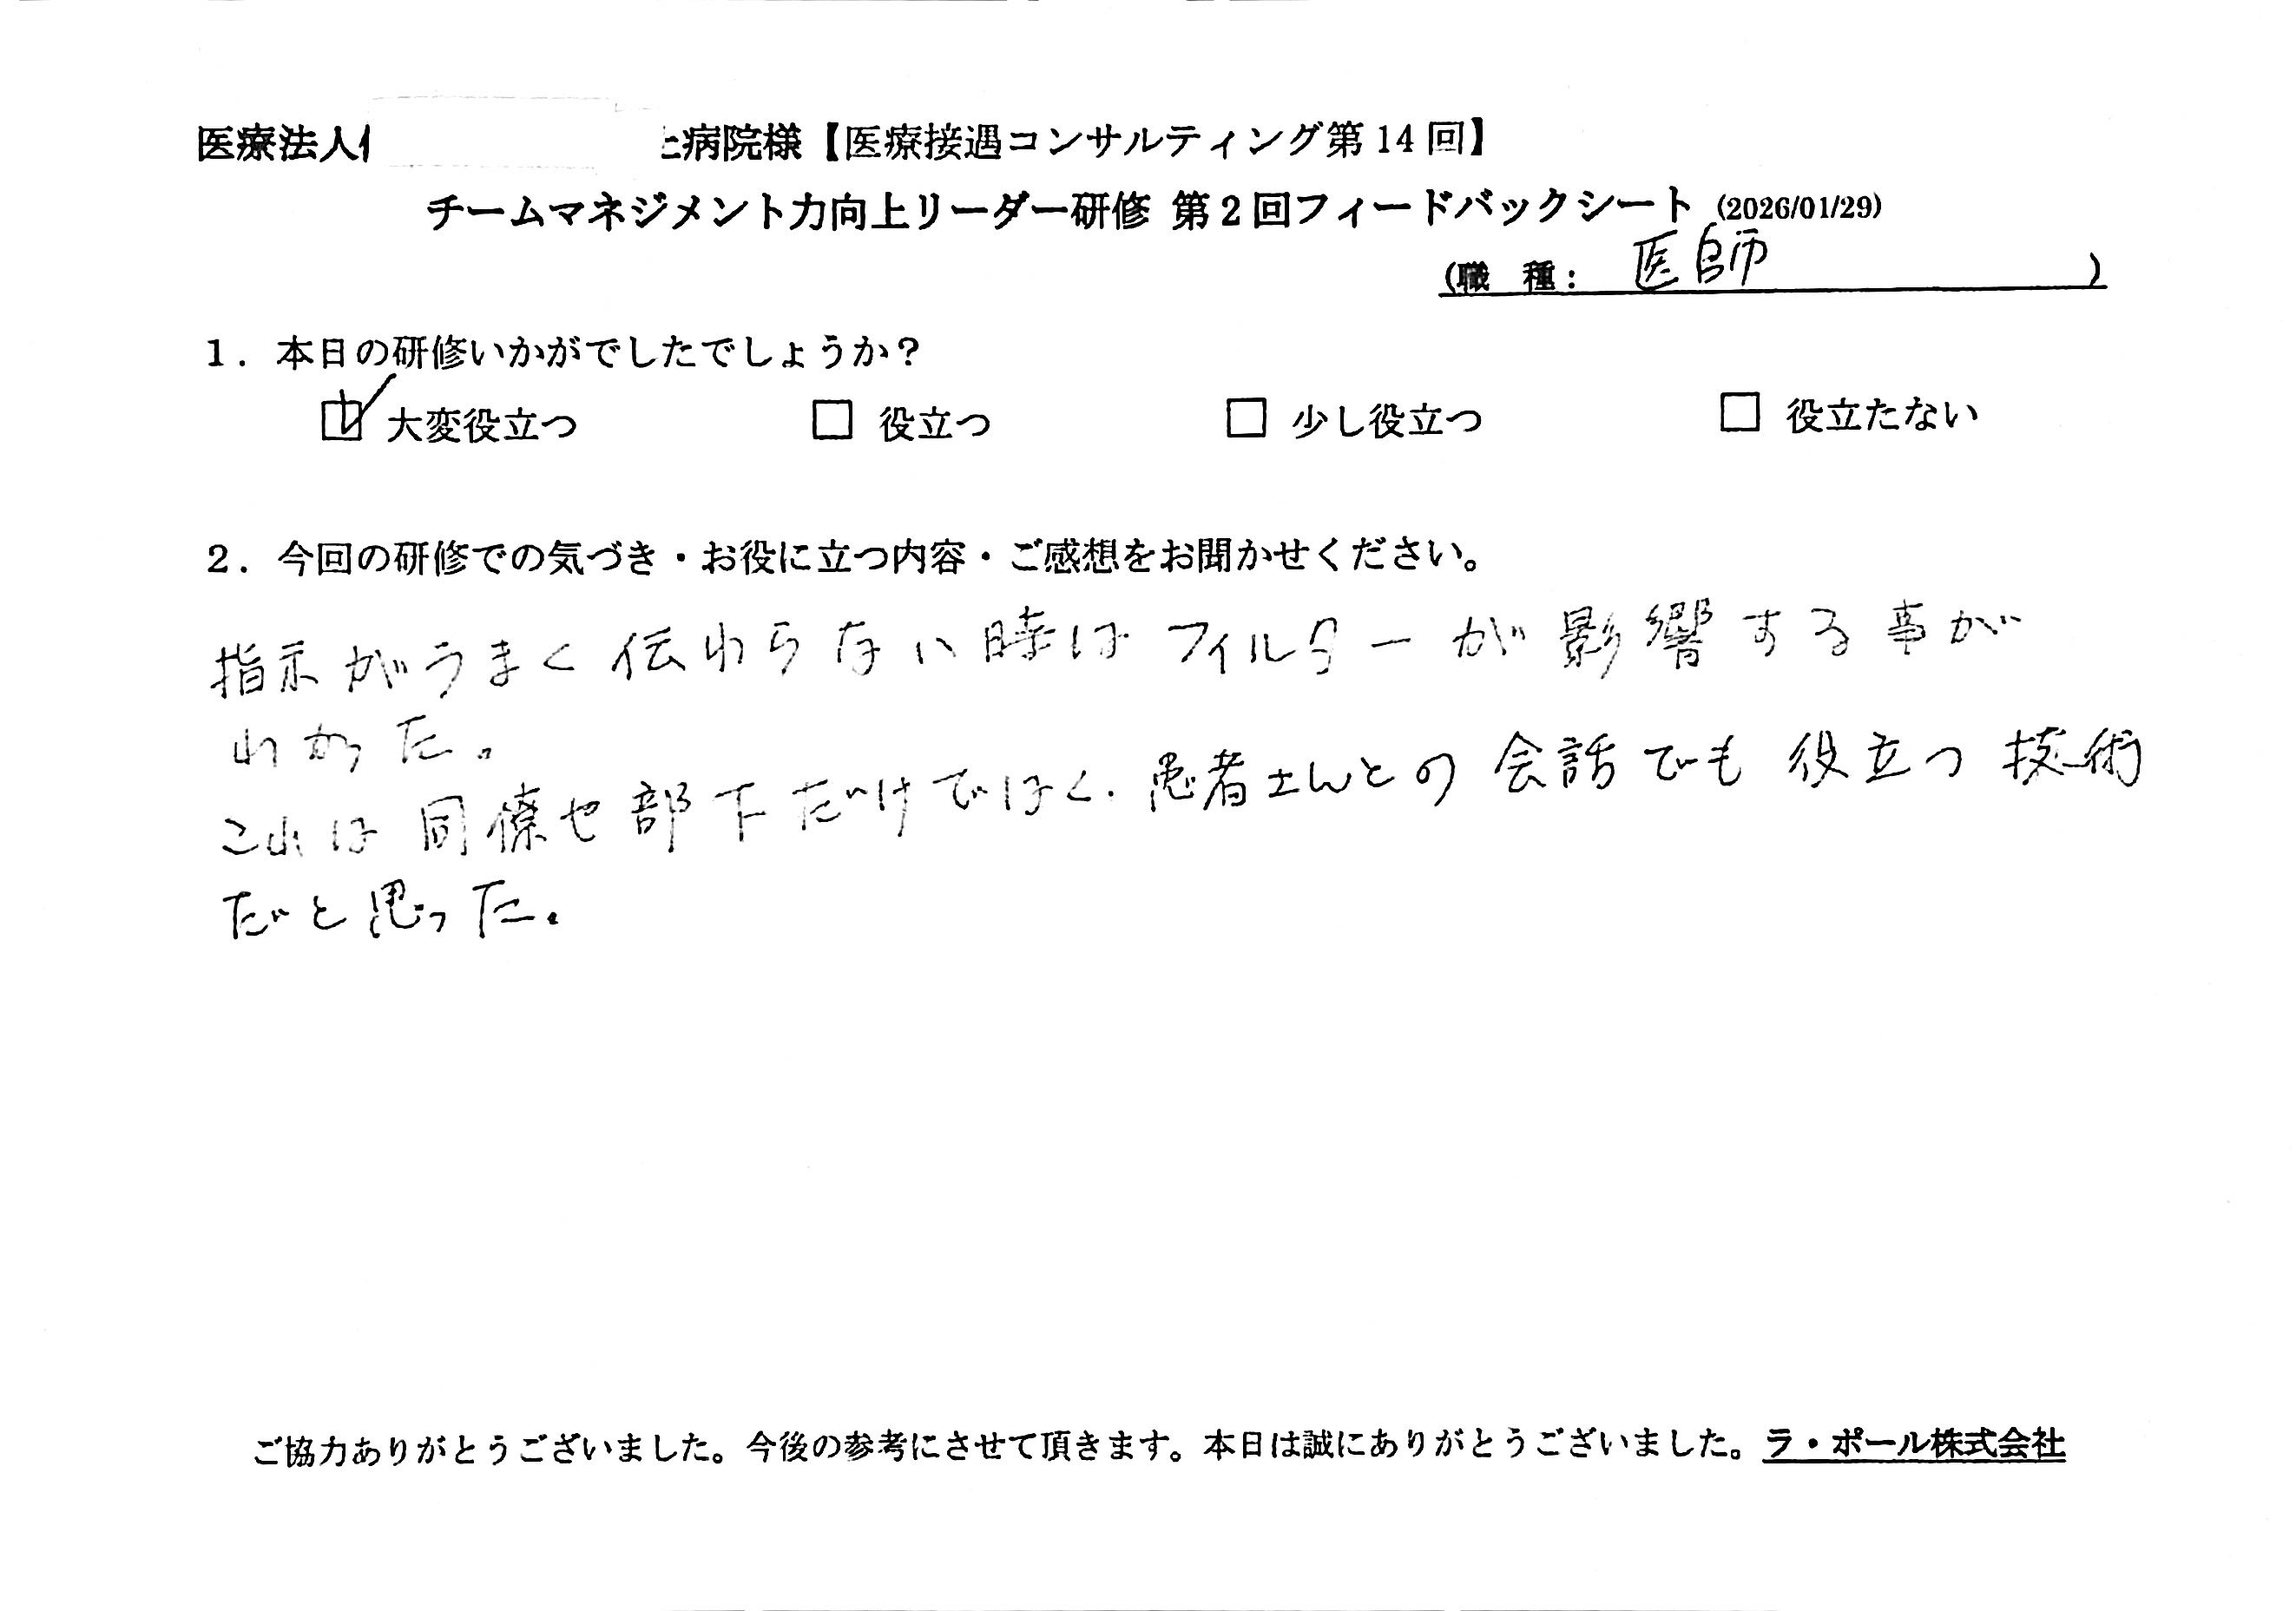 医療法人 病院様【医療接遇コンサルティング第14回】
チームマネジメント力向上リーダー研修 第2回フィードバックシート (2026/01/29)
(職 種： 医師 )
1．本日の研修いかがでしたでしょうか？
☑ 大変役立つ □ 役立つ □ 少し役立つ □ 役立たない
2．今回の研修での気づき・お役に立つ内容・ご感想をお聞かせください。
指示がうまく伝わらない時はフィルターが影響する事が
わかった。
これは同僚や部下だけではなく、患者さんとの会話でも役立つ技術
だと思った。
ご協力ありがとうございました。今後の参考にさせて頂きます。本日は誠にありがとうございました。ラ・ポール株式会社